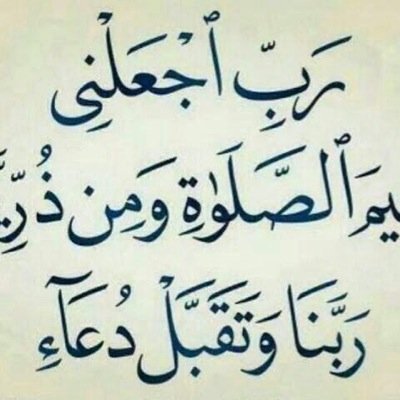 رَبِّ ٱجْعَلْنِى
ـيمَ ٱلصَّلَوٰةِ وَمِن ذُرِّيَّـ
رَبَّنَا وَتَقَبَّلْ دُعَآءِ